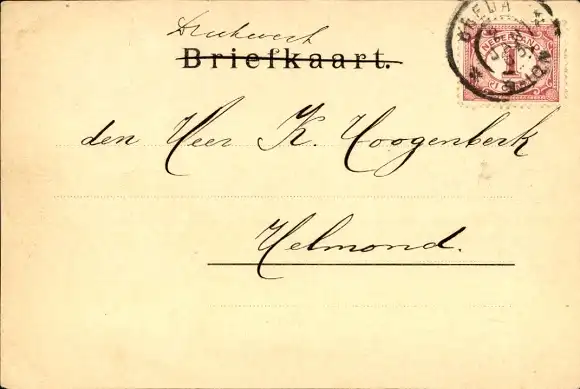 Drukwerk
Briefkaart.
BREDA
NEDERLAND
1
den Heer K. Hoogenberk
Helmond.